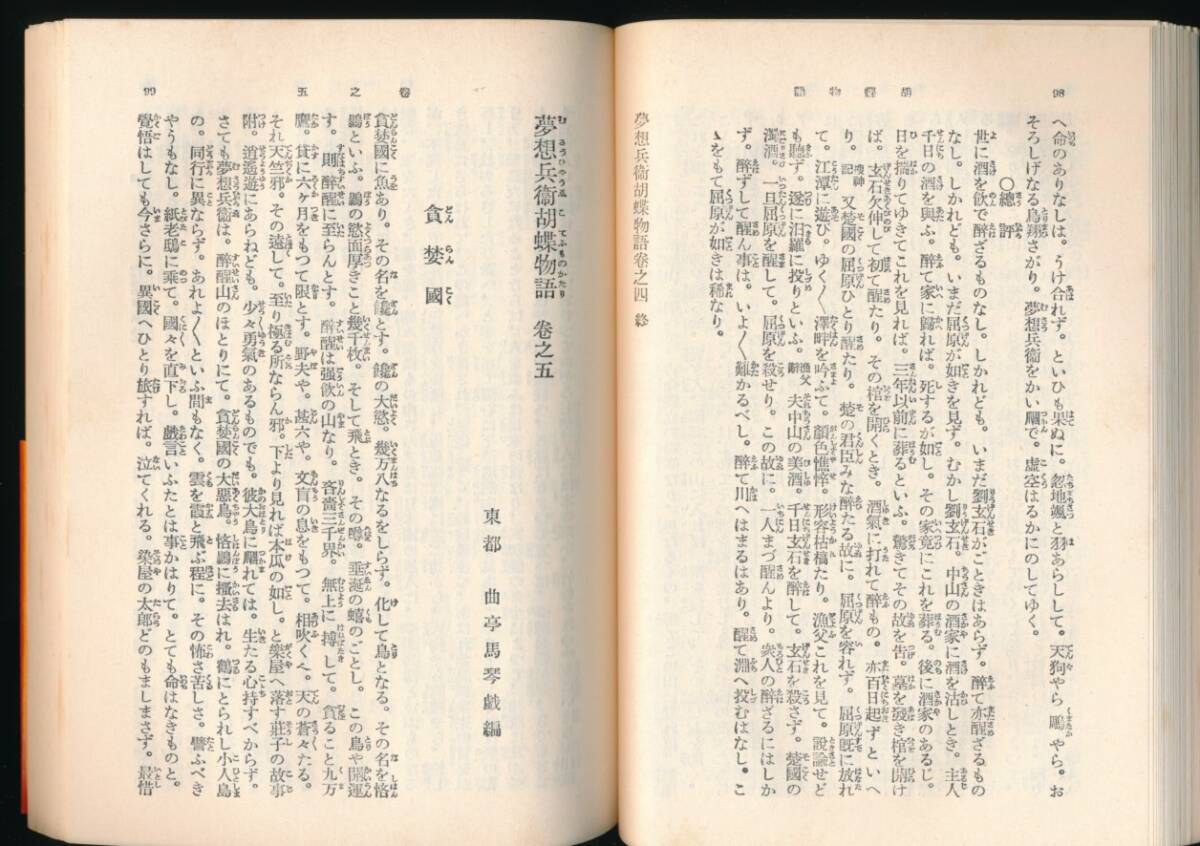 98
胡蝶物語
へ命のありなしは。うけ合れず。といひも果ぬに。忽地颯と羽あらしして。天狗やら鵰やら。お
そろしげなる鳥翔さがり。夢想兵衞をかい爴で。虚空はるかにのしてゆく。
〇總評
世に酒を飮で醉ざるものなし。しかれども。いまだ劉玄石がごときはあらず。醉て亦醒ざるもの
なし。しかれども。いまだ屈原が如きを見ず。むかし劉玄石。中山の酒家に酒を沽しとき。主人
千日の酒を與ふ。醉て家に歸れば。死するが如し。その家竟にこれを葬る。後に酒家のあるじ。
日を揣りてゆきてこれを見れば。三年以前に葬るといふ。驚きてその故を告。墓を發き棺を開け
ば。玄石欠伸して初て醒たり。その棺を開くとき。酒氣に打れて醉もの。亦百日起ずといへ
り。搜神記 又楚國の屈原ひとり醒たり。楚の君臣みな醉たる故に。屈原を容れず。屈原既に放れ
て。江潭に遊び。ゆく〱澤畔を吟ふて。顏色憔悴。形容枯槁たり。漁父これを見て。說諭せど
も聽ず。遂に汨羅に投りといふ。漁父辭 夫中山の美酒。千日玄石を醉して。玄石を殺さず。楚國の
濁酒。一旦屈原を醒して。屈原を殺せり。この故に。一人まづ醒んより。衆人の醉ざるにはしか
ず。醉ずして醒ん事は。いよ〱難かるべし。醉て川へはまるはあり。醒て淵へ投むはなし。こ
ゝをもて屈原が如きは稀なり。
夢想兵衞胡蝶物語卷之四 終
卷之五
99
夢想兵衞胡蝶物語 卷之五
東都 曲亭馬琴戲編
貪婪國
貪婪國に魚あり。その名を饞とす。饞の大慾。幾万八なるをしらず。化して鳥となる。その名を悋
鵬といふ。鵬の慾面厚きこと幾千枚。そして飛とき。その噂。垂涎の蟢のごとし。この鳥や開運
す。則醉醒に至らんとす。醉醒は强飮の山なり。吝嗇三千界。無上に搏して。貪ること九万
鷹。貸に六ヶ月をもつて限とす。野夫や。甚六や。文盲の息をもつて。相吹く。天の蒼々たる。
それ天竺邪。その遠して。至り極る所ならん邪。下より見れば木瓜の如し。と樂屋へ落す莊子の故事
附。逍遙遊にあらねども。少々勇氣のあるものでも。彼大鳥に爴れては。生たる心持すべからず。
さても夢想兵衞は。醉醒山のほとりにて。貪婪國の大惡鳥。悋鵬に搔去はれ。鶴にとられし小人島
の。同行に異ならず。あれよ〱といふ間もなく。雲を霞と飛ぶ程に。その怖さ苦しさ。譬ふべき
やうもなし。紙老鴟に乘て。國々を直下し。戲言いふたとは事かはりて。とても命はなきものと。
覺悟はしても今さらに。異國へひとり旅すれば。泣てくれる。染屋の太郎どのもましまさず。最惜